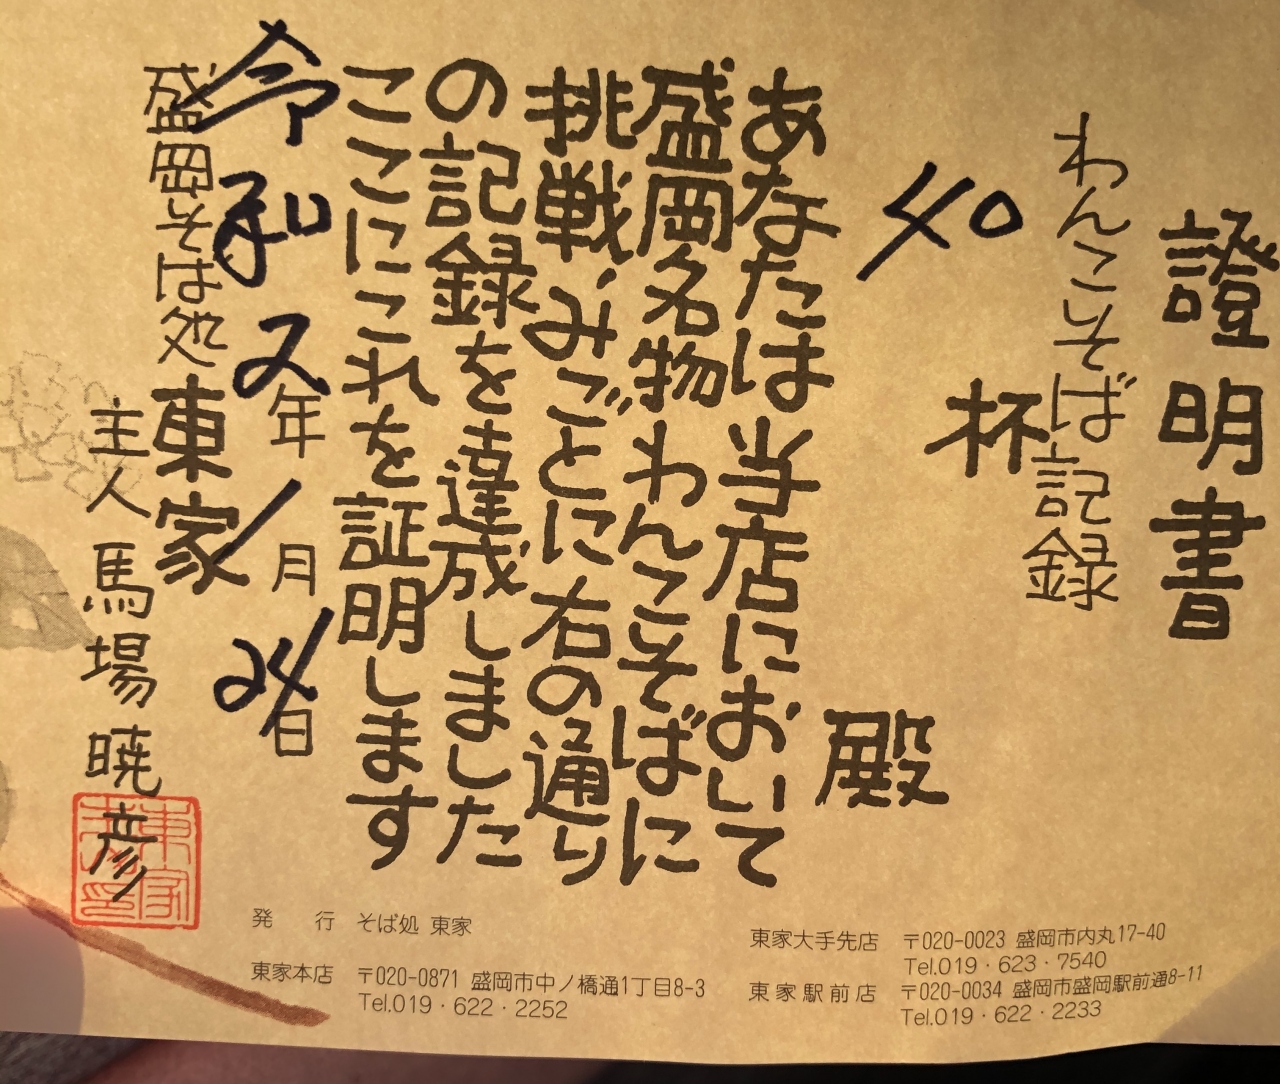 證明書
わんこそば記録
40杯
殿
あなたは当店において
盛岡名物わんこそばに
挑戦、みごとに右の通り
の記録を達成しました
ここにこれを証明します
令和2年1月24日
盛岡そば処東家
主人 馬場暁彦
発 行 そば処 東家
東家本店 〒020-0871 盛岡市中ノ橋通1丁目8-3
Tel.019・622・2252
東家大手先店 〒020-0023 盛岡市内丸17-40
Tel.019・623・7540
東家駅前店 〒020-0034 盛岡市盛岡駅前通8-11
Tel.019・622・2233